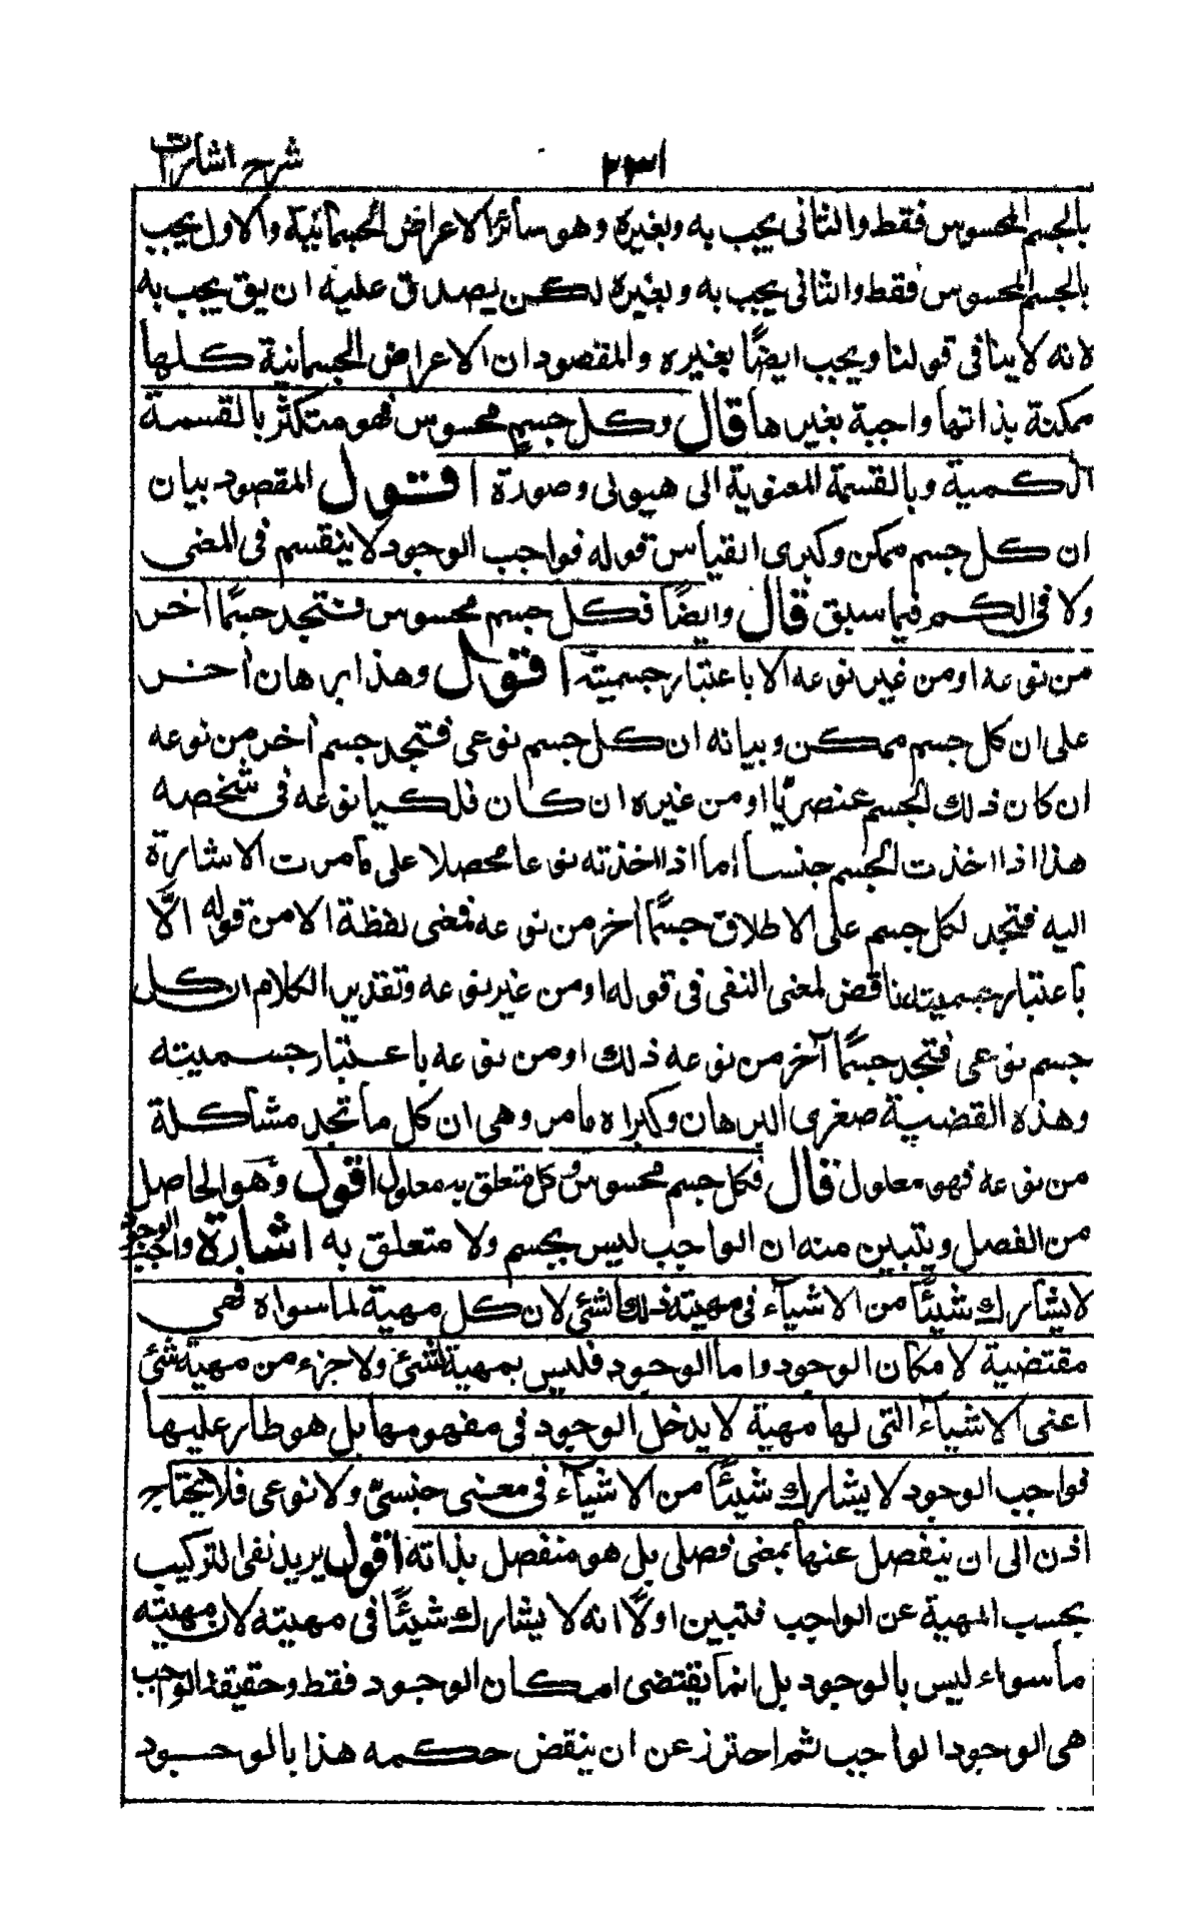 ٢٣١ شرح اشارات
بالجسم المحسوس فقط والثانى يجب به وبغيره وهو سائر الاعراض الجسمانية والاول يجب
بالجسم المحسوس فقط والثانى يجب به وبغيره لكن يصدق عليه ان يق يجب به
لانه لا ينافى قولنا ويجب ايضًا بغيره والمقصود ان الاعراض الجسمانية كلها
ممكنة بذاتها واجبة بغيرها قال وكل جسم محسوس فهو متكثر بالقسمة
الكمية وبالقسمة المعنوية الى هيولى وصورة اقول المقصود بيان
ان كل جسم ممكن وكبرى القياس قوله فواجب الوجود لا ينقسم فى المعنى
ولا فى الكم فيما سبق قال وايضًا فكل جسم محسوس فتجد جسمًا اخر
من نوعه او من غير نوعه الا باعتبار جسميته اقول وهذا برهان اخر
على ان كل جسم ممكن وبيانه ان كل جسم نوعى فتجد جسم اخر من نوعه
ان كان ذلك الجسم عنصريًا او من غيره ان كان فلكيا نوعه فى شخصه
هذا اذا اخذت الجسم جنسا اما اذا اخذته نوعا محصلا على ما مرت الاشارة
اليه فتجد لكل جسم على الاطلاق جسمًا اخر من نوعه فمعنى لفظة الا من قوله الّا
باعتبار جسميته ناقض لمعنى النفى فى قوله او من غير نوعه وتقدير الكلام ان كل
جسم نوعى فتجد جسمًا آخر من نوعه ذلك او من نوعه باعتبار جسميته
وهذه القضية صغرى البرهان وكبراه ما مر وهى ان كل ما تجد مشاكلة
من نوعه فهو معلول قال فكل جسم محسوس وكل متعلق به معلول اقول وهو الحاصل
من الفصل ويتبين منه ان الواجب ليس بجسم ولا متعلق به اشارة واجب الوجود
لا يشارك شيئًا من الاشياء فى مهيته ذلك الشئ لان كل مهية لما سواه فهى
مقتضية لامكان الوجود واما الوجود فليس بمهية لشئ ولا جزء من مهية شئ
اعنى الاشياء التى لها مهية لا يدخل الوجود فى مفهومها بل هو طار عليها
فواجب الوجود لا يشارك شيئًا من الاشياء فى معنى جنسىّ ولا نوعى فلا يحتاج
اذن الى ان ينفصل عنها بمعنى فصلى بل هو منفصل بذاته اقول يريد نفى التركيب
بحسب المهية عن الواجب فتبين اولًا انه لا يشارك شيئًا فى مهيته لان مهيته
ما سواه ليس بالوجود بل انما يقتضى امكان الوجود فقط وحقيقة الواجب
هى الوجود الواجب ثم احترز عن ان ينقض حكمه هذا بالوجود